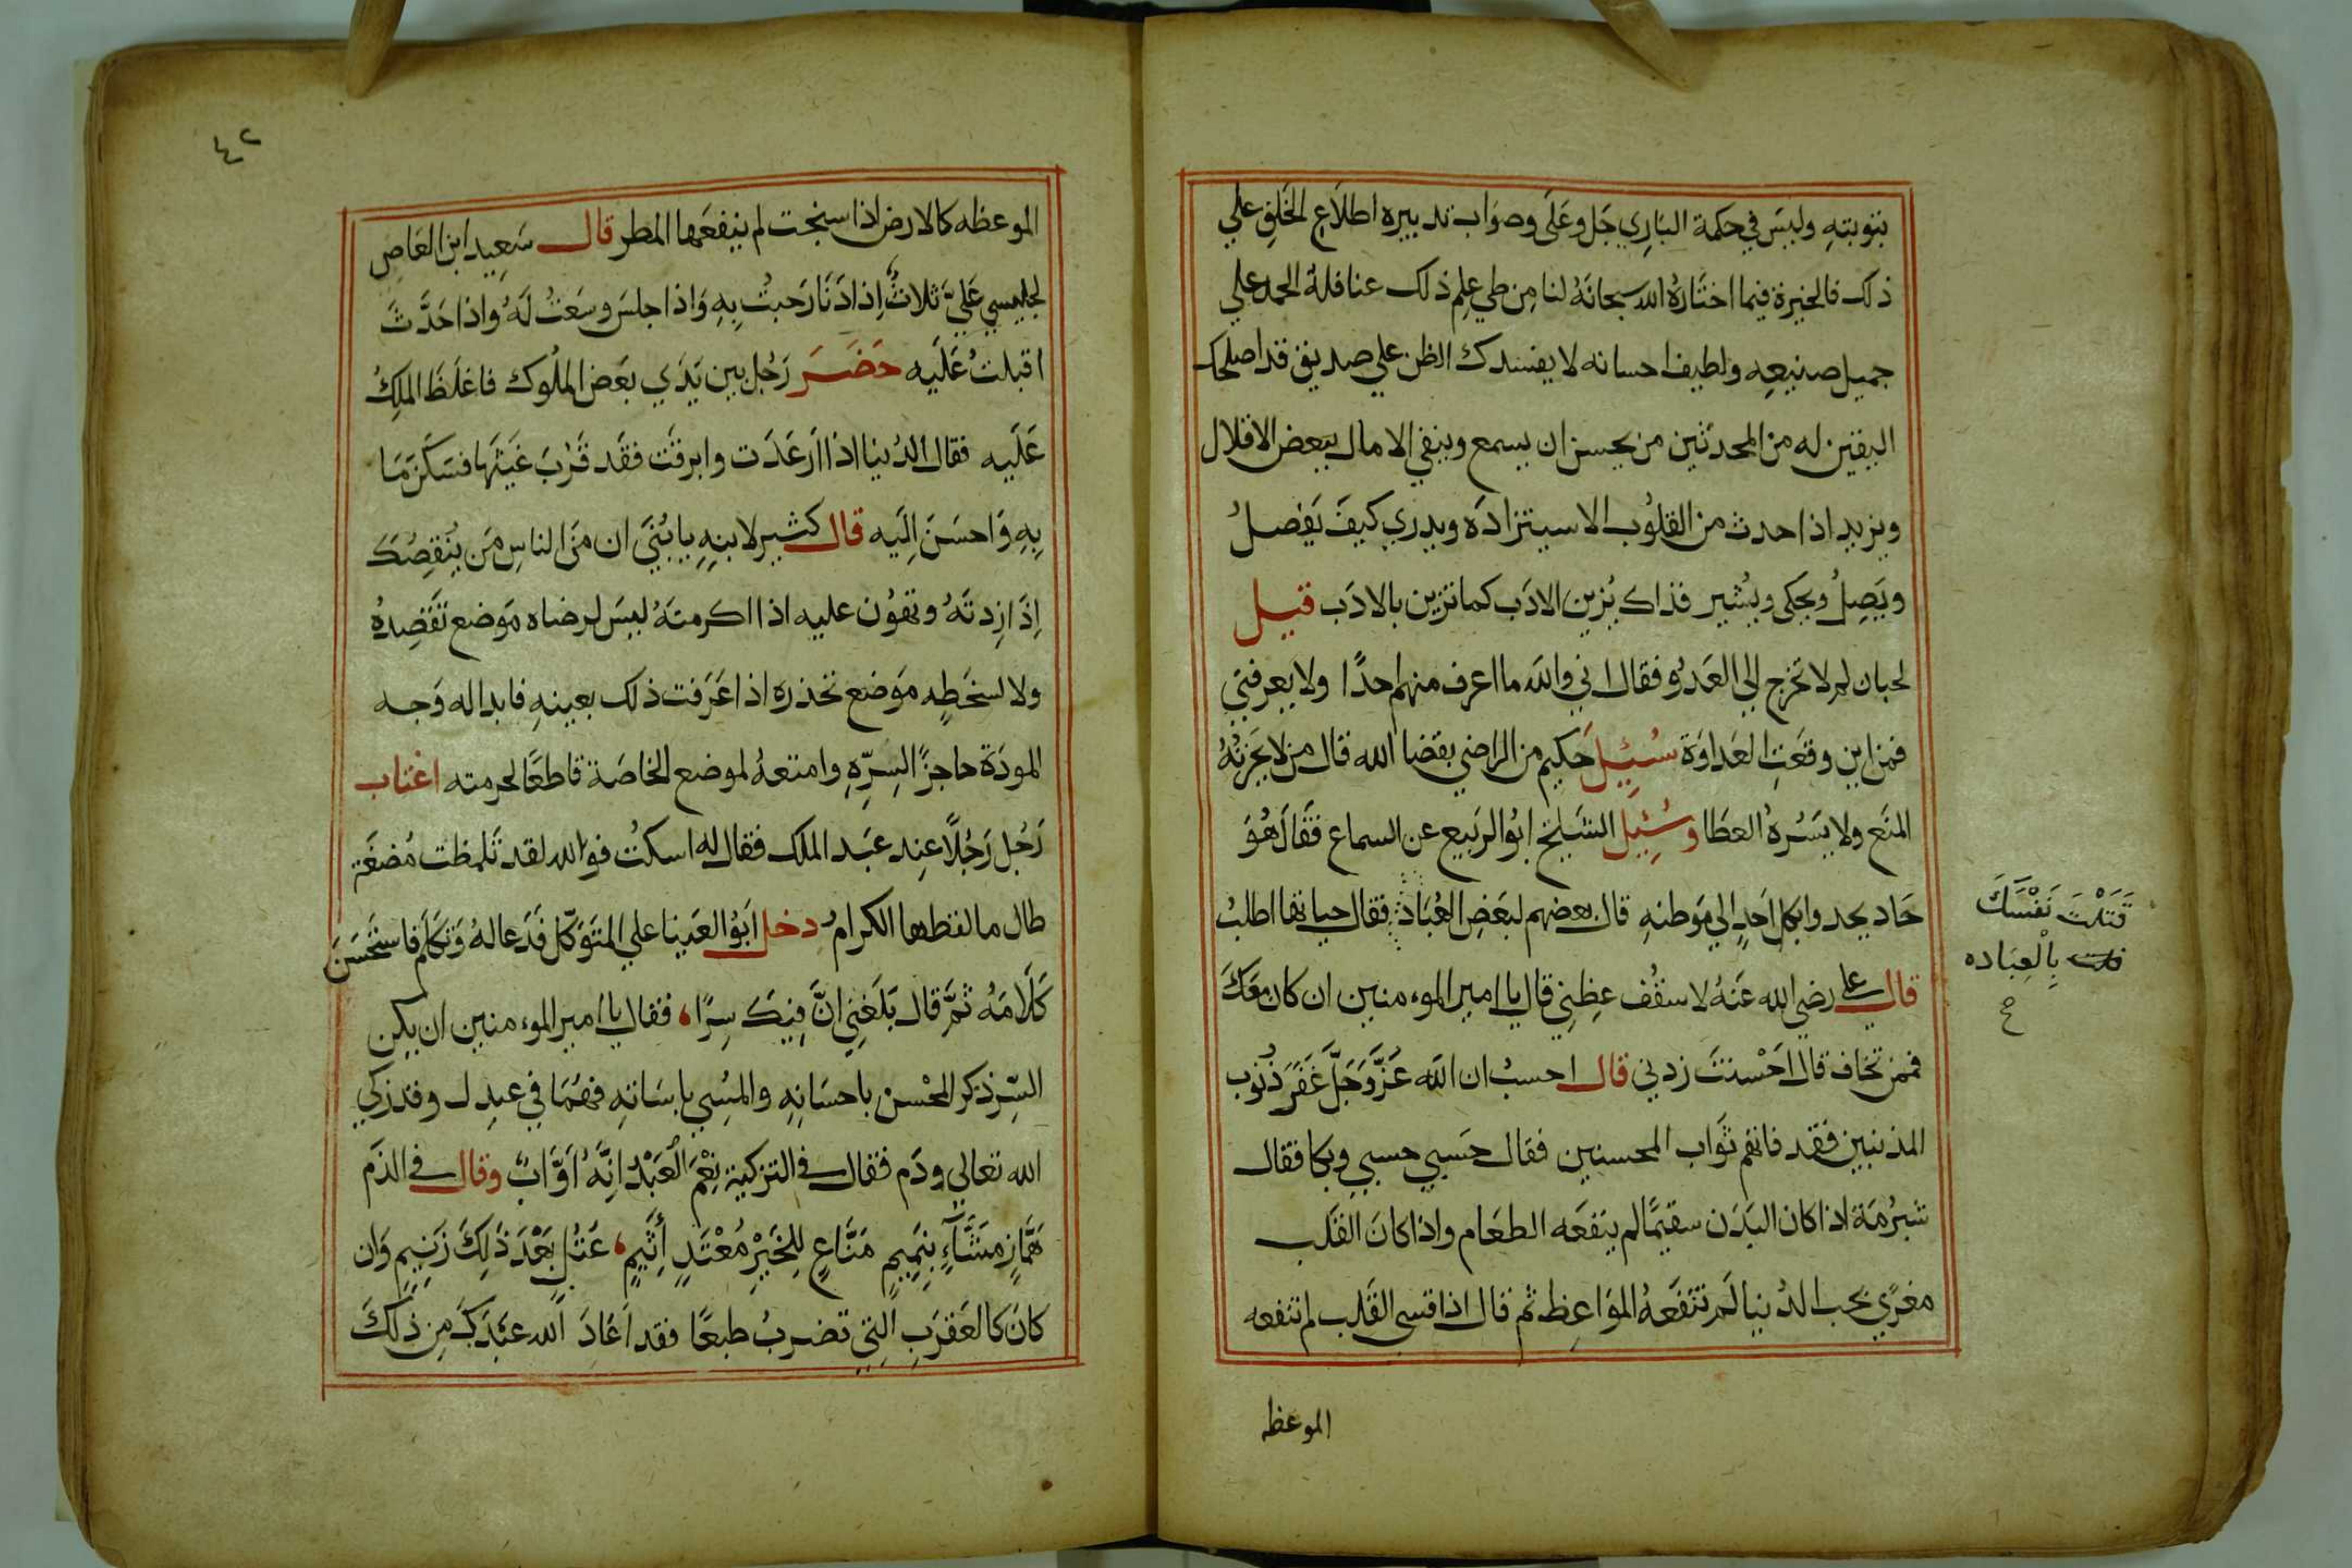 بتوبتهِ وليسَ في حكمة البَارِي جَل وعَلَى وصوَاب تدبيره اطلاع الخَلِق علي
ذلك فالخيرة فيما اختَارهُ الله سبحانَهُ لنا مِن طي عِلِم ذلك عنا فلهُ الحمد علي
جميل صنيعِه ولطيف احسانه لا يفسدك الظن علي صديق قد اصلحك
اليقين له من المحدثين من يحسن ان يسمع وينفي الامال ببعض الاقلال
ويزيد اذا حدث من القلوُب الاستزادَه ويدري كيفَ يَفصلُ
ويَصِلُ ويحكى ويُشير فذاك يُزين الادَب كما تزين بالادَب قيل
لجبان لم لا تخرج الي العَدُو فقال اني والله ما اعرف منهم احدًا ولا يعرفني
فمن اين وقعَتِ العَداوَة سُئِيلَ حَكيم من الراضي بقضا الله قال من لا يَحزنُهُ
المنَع ولا يسُرهُ العطَا وسُئِيل الشيخ ابوُ الربيع عن السماع فقَال هُوَ
حَاد يحدوا بكل احَدٍ الي مَوطنهِ قال بعضهم لبعَضِ العُبّاد فقال حياتها اطلبُ
قال علي رضي الله عَنهُ لاسقُف عِظِني قال يا امير الموءمنين ان كان معَكَ
فممن تخاف قال احْسنتَ زدني قال احسبُ ان الله عَزَّوَجَلَّ غَفَرَ ذُنوُب
المذنبين فقد فاتهم ثوَاب المحسنين فقال حَسبي حسبي وبكا فقال
شبرُمَة اذا كان البَدَن سقيمًا لم ينفعَه الطعَام واذا كانَ القلَب
مغرًي بحب الدُنيا لَم تنفَعهُ الموَاعِظ ثم قال اذا قسى القَلب لم تنفعه
الموعظه
قَتَلْتَ نَفْسَكَ
بِالْعِبَاده
صح
٤٢
الموعظه كالارض اذا سبخت لم ينفعَها المطر قال سَعِيد ابن العَاص
لجليسي عَليَّ ثلاثٌ اِذا دَنَا رَحبتُ بِهِ وَاذا جلسَ وسَعتُ لَهُ واذا حَدَّثَ
اقبلتُ عَلَيه حَضَرَ رَجُل بين يَدَي بعَض الملُوك فاغلَظَ الملِكُ
عَلَيه فقال الدُنيا اذا ارعَدَت وابرقَت فقَد قَرُبَ غَيثها فسَكَن مَا
بِهِ وَاحسَنَ اِلَيه قال كثير لابنهِ يا بُنَيَ ان مَن الناسِ مَن ينُقِصُكَ
اِذَا زِدتَهُ وتهوُن عليه اذا اكرمتَهُ ليسَ لرضاه مَوضع تقَصِدهُ
ولا لسخَطِه مَوَضع تحذره اذا عَرَفت ذلك بعينهِ فابداله وَجه
المودَة حاجزًا لسِرِّهِ وامتعهُ لموضع الخاصَة قاطعًا لحرمته اغتاب
رَجُل رَجُلًا عِند عبَد الملك فقال له اسكتُ فوالله لقد تَلمظت مُضغَة
طال ما لفظها الكرام دخل ابَوُ العَينا علي المتوَكّل فَدَعا لهُ وَتكلمَ فاستحَسَنَ
كَلَامَهُ ثمَّ قال بَلَغَنِي انَّ فِيَك سِرًا، فقال يا امير الموءمنين ان يكن
السِّر ذكر المحْسن باحسَانهِ والمسُي باِساته فهُمَا في عبدِل وقد زكي
الله تعالى ودَم فقال في التزكية نِعْمَ الْعَبْدُ اِنَّهُ اَوَّابٌ وقال في الذَم
هَمَّازٍ مَشَّآءٍ بِنَمِيمٍ مَنَّاعٍ لِلخَيْرِ مُعْتَدٍ أَثِيمٍ، عَتُلٍ بَعْدَ ذَلِكَ زَنِيمٍ وَان
كانَ كالعَقرَبِ الّتِي تضرِبُ طبعًا فقد اعَاذَ الله عبَدَكَ مِن ذلكَ